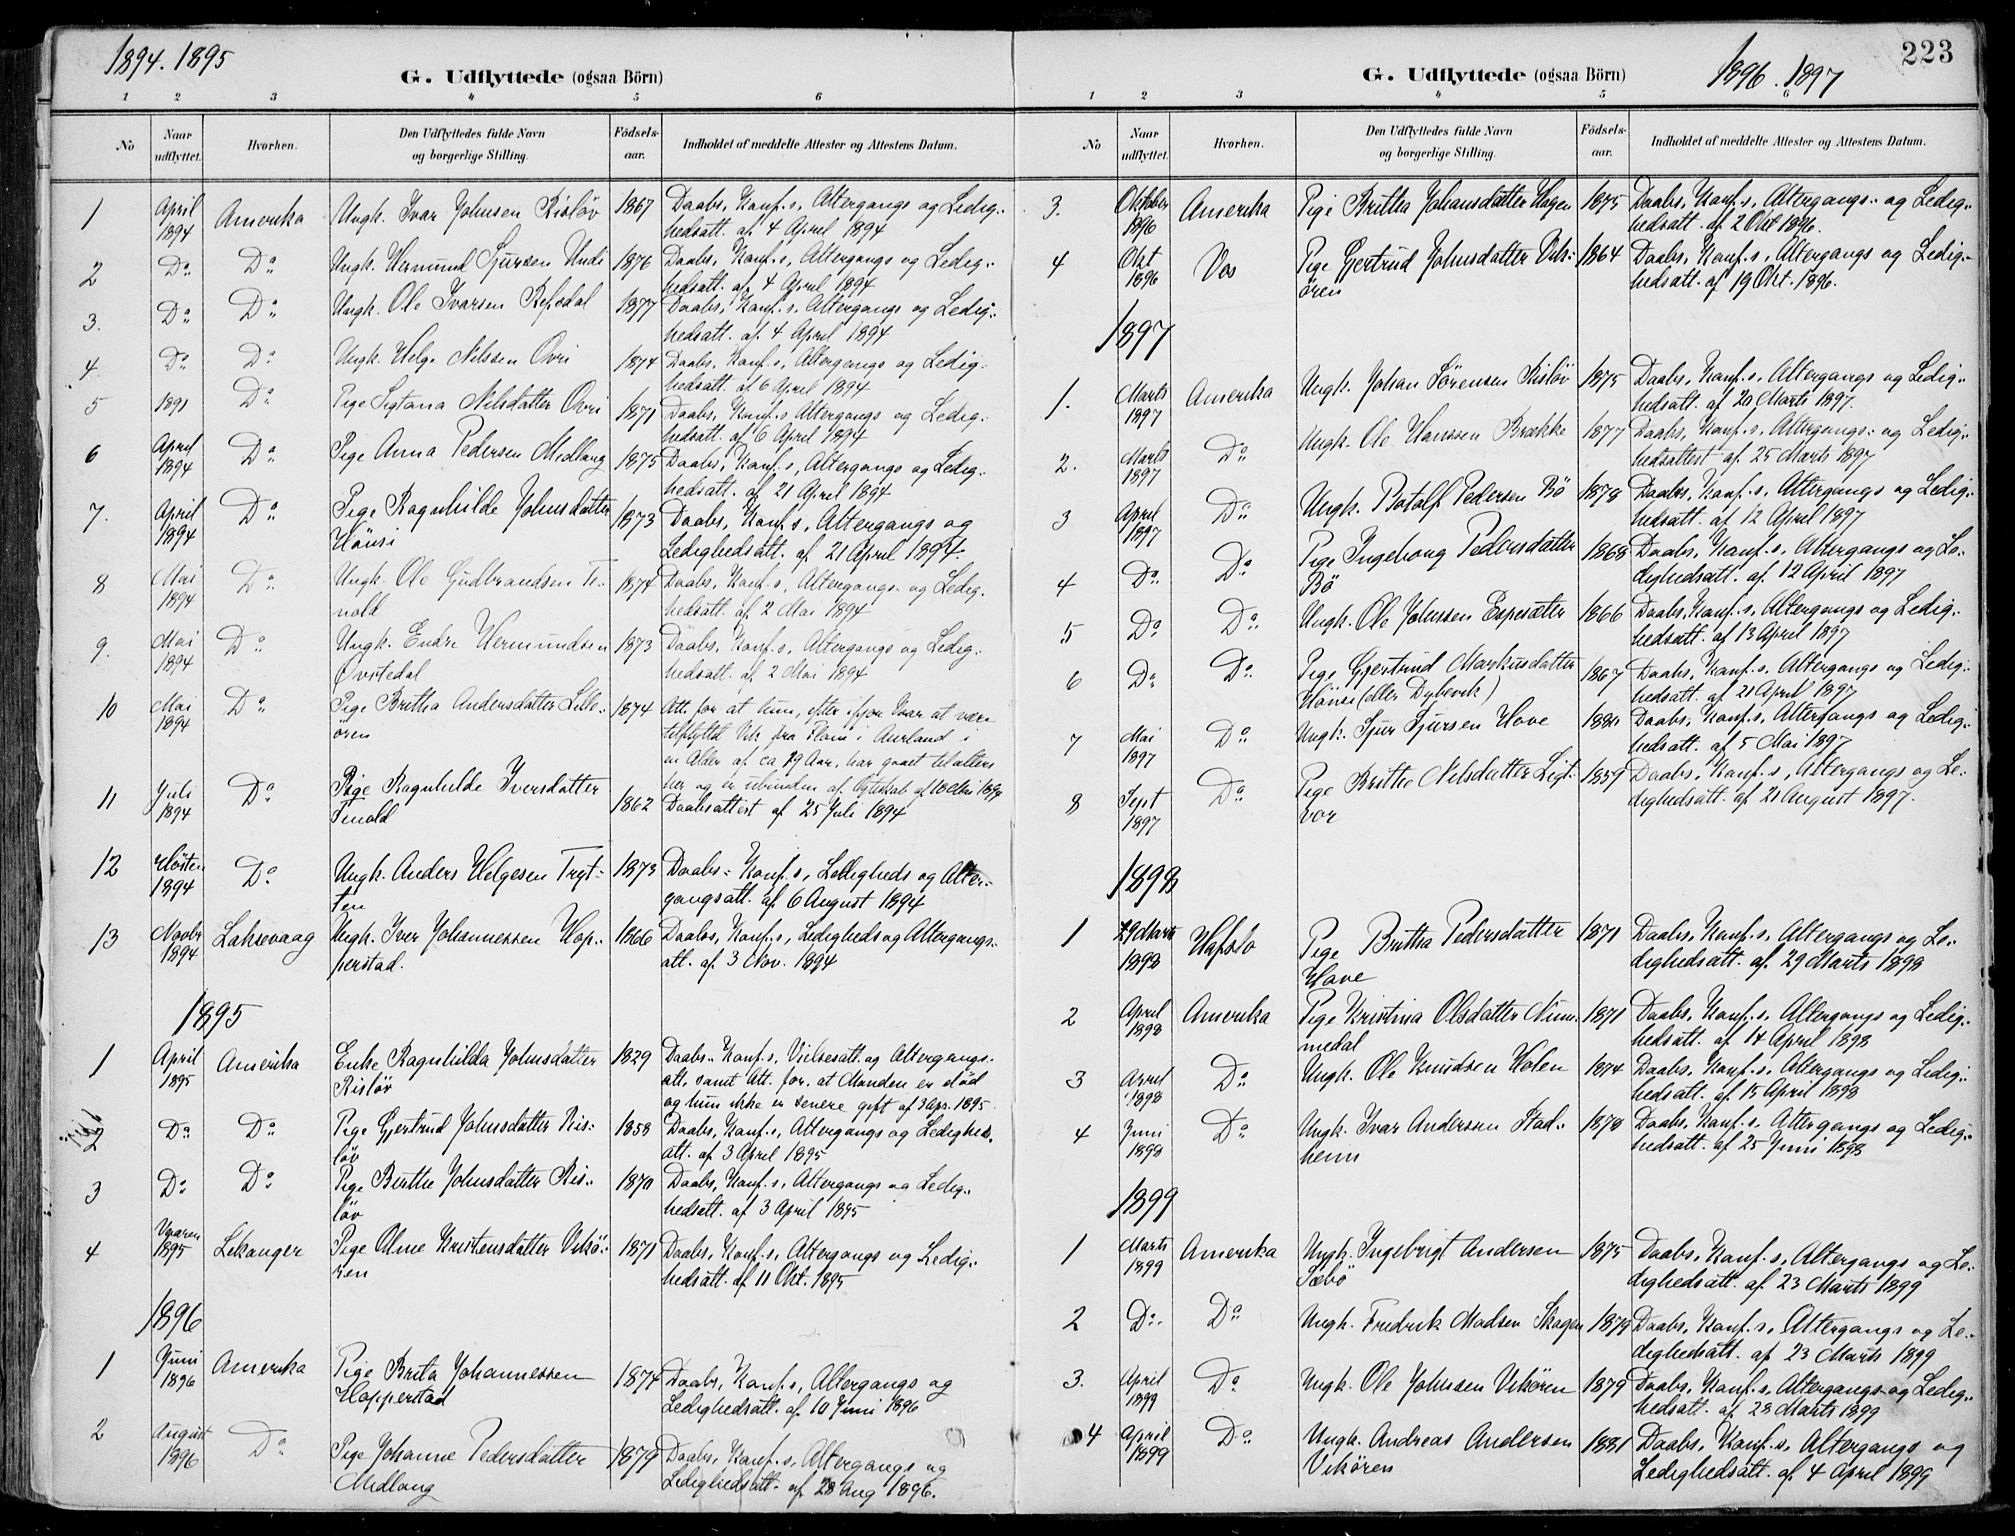 1894. 1895
G. Udflyttede (ogsaa Börn)
1 2 3 4 5 6
No
Naar udflyttet.
Hvorhen.
Den Udflyttedes fulde Navn og borgerlige Stilling.
Fødsels-aar.
Indholdet af meddelte Attester og Attestens Datum.
1 April 1894 Amerika Ungk. Ivar Johnsen Risløv 1867 Daabs, Konf.s, Altergangs og Ledig-
hedsatt. af 4 April 1894
2 Do Do Ungk. Hermund Sjursen Undi 1876 Daabs, Konf.s, Altergangs og Ledig-
hedsatt. af 4 April 1894
3. Do Do Ungk. Ole Ivarsen Refsdal 1877 Daabs, Konf.s, Altergangs og Ledig-
hedsatt. af 4 April 1894
4. Do Do Ungk. Helge Nilssen Ovri 1874 Daabs, Konf.s, Altergangs og Ledig-
hedsatt. af 6 April 1894
5 1891 Do Pige Nilsdatter Ovri 1871 Daabs, Konf.s Altergangs og Ledig-
hedsatt. af 6 April 1894
6 April 1894 Do Pige Anna Pedersen Midlang 1875 Daabs, Konf.s, Altergangs og Ledig-
hedsatt. af 21 April 1894
7. April 1894 Do Pige Ragnhilde Johnsdatter 1873 Daabs, Konf.s, Altergangs og
Hönsi Ledighedsatt. af 21 April 1894.
8 Mai 1894 Do Ungk. Ole Gudbrandsen Te- 1874 Daabs, Konf.s, Altergangs- og Ledig-
nold hedsatt. af 2 Mai 1894
9. Mai 1894 Do Ungk. Endre Hermundsen 1873 Daabs, Konf.s, Altergangs og Ledig-
Øvstedal hedsatt. af 2 Mai 1894
10 Mai 1894 Do Pige Britha Andersdatter Lille- 1874 Att. for at hun, efter at være
ören tilflyttet Vik fra Flam i Aurland i
en Alder af ca Aar, har gaaet til alters
her og er ubunden af Ægteskab af 10 Mai 1894
11 Juli 1894 Do Pige Ragnhilde Iversdatter 1862 Daabsattest af 25 Juli 1894
Tenold
12 Høsten 1894 Do Ungk. Anders Helgesen Tryt- 1873 Daabs- Konf.s, Ledigheds og Alter-
ten gangsatt. af 6 August 1894
13 Novbr 1894 Laksevaag Ungk. Iver Johannessen Hop- 1866 Daabs, Konf.s, Ledigheds og Altergangs-
perstad. att. af 3 Nov. 1894
1895
1 April 1895 Amerika Enke Ragnhilda Johnsdatter 1829 Daabs- Konf.s, Vielsesatt. og Altergangs-
Risløv att. samt Att. for. at Manden er død
og hun ikke er senere gift af 3 Apr. 1895
2 Do Do Pige Gjertrud Johnsdatter Ris- 1858 Daabs, Konf.s, Altergangs og Ledigheds
löv att. af 3 April 1895
3 Do Do Pige Birthe Johnsdatter Ris- 1870 Daabs, Konf.s, Altergangs og Ledig-
löv hedsatt. af 3 April 1895
4 Vaaren 1895 Lekanger Pige Oline Kristensdatter Vikö- 1871 Daabs, Konf.s, Altergangs og Ledig-
ren hedsatt. af 11 Okt. 1895
1896
1 Juni 1896 Amerika Pige Brita Johannessen 1874 Daabs, Konf.s, Altergangs og
Hopperstad Ledighedsatt. af 10 Juni 1896
2 August 1896 Do Pige Johanne Pedersdatter 1879 Daabs, Konf.s, Altergangs og
Midlang Ledighedsatt. af 28 Aug 1896.
1896. 1897
223
G. Udflyttede (ogsaa Börn)
1 2 3 4 5 6
No
Naar udflyttet.
Hvorhen.
Den Udflyttedes fulde Navn og borgerlige Stilling.
Fødsels-aar.
Indholdet af meddelte Attester og Attestens Datum.
3. Oktober 1896 Amerika Pige Britha Johansdatter Hagen 1875 Daabs, Konf.s, Altergangs- og Ledig-
hedsatt. af 2 Okt 1896.
4 Okt 1896 Vos Pige Gjertrud Johnsdatter Vik- 1864 Daabs, Konf.s, Altergangs og Ledig-
ören hedsatt. af 19 Okt. 1896.
1897
1. Marts 1897 Amerika Ungk. Johan Sörensen Risløv 1875 Daabs, Konf.s, Altergangs og Ledig-
hedsatt. af 20 Marts 1897.
2. Marts 1897 Do Ungk. Ole Hanssen Brække 1877 Daabs, Konf.s, Altergangs- og Ledig-
hedsattest af 25 Marts 1897
3 April 1897 Do Ungk. Botolf Pedersen Bö 1878 Daabs, Konf.s, Altergangs og Ledig-
hedsatt. af 12 April 1897
4 Do Do Pige Ingeborg Pedersdatter 1868 Daabs, Konf.s, Altergangs og Le-
Bö dighedsatt. af 12 April 1897
5 Do Do Ungk. Ole Johnsen Espesæter 1866 Daabs, Konf.s, Altergangs og Ledig-
hedsatt. af 13 April 1897
6 Do Do Pige Gjertrud Markusdatter 1867 Daabs, Konf.s, Altergangs og Ledig-
Hönsi (eller Dybevik) hedsatt. af 21 April 1897
7 Mai 1897 Do Ungk. Sjur Sjursen Hove 1880 Daabs, Konf.s, Altergangs og Ledig-
hedsatt. af 5 Mai 1897
8 Sept 1897 Do Pige Brithe Nilsdatter Ligt- 1859 Daabs, Konf.s, Altergangs og Le-
vor dighedsatt. af 21 August 1897.
1898
1 29 Marts 1898 Hafslo Pige Britha Pedersdatter 1871 Daabs, Konf.s, Altergangs og Le-
Hove dighedsatt. af 29 Marts 1898
2 April 1898 Amerika Pige Kristina Olsdatter Num- 1871 Daabs, Konf.s, Altergangs og Ledig-
medal hedsatt. af 14 April 1898
3 April 1898 Do Ungk. Ole Knudsen Holen 1874 Daabs, Konf.s, Altergangs og Ledig-
hedsatt. af 15 April 1898
4 Juni 1898 Do Ungk. Ivar Andersen Stad- 1878 Daabs, Konf.s, Altergangs og Ledig-
heim hedsatt. af 25 Juni 1898
1899
1 Marts 1899 Amerika Ungk. Ingebrigt Andersen 1875 Daabs, Konf.s, Altergangs og Le-
Sæbö dighedsatt. af 23 Marts 1899
2 Do Do Ungk. Fredrik Madsen Skagen 1879 Daabs, Konf.s, Altergangs og Le-
dighedsatt. af 23 Marts 1899
3. April 1899 Do Ungk. Ole Johnsen Vikören 1879 Daabs, Konf.s, Altergangs og Ledig-
hedsatt. af 28 Marts 1899
4 April 1899 Do Ungk. Andreas Andersen 1881 Daabs, Konf.s, Altergangs og
Vikören Ledighedsatt. af 4 April 1899